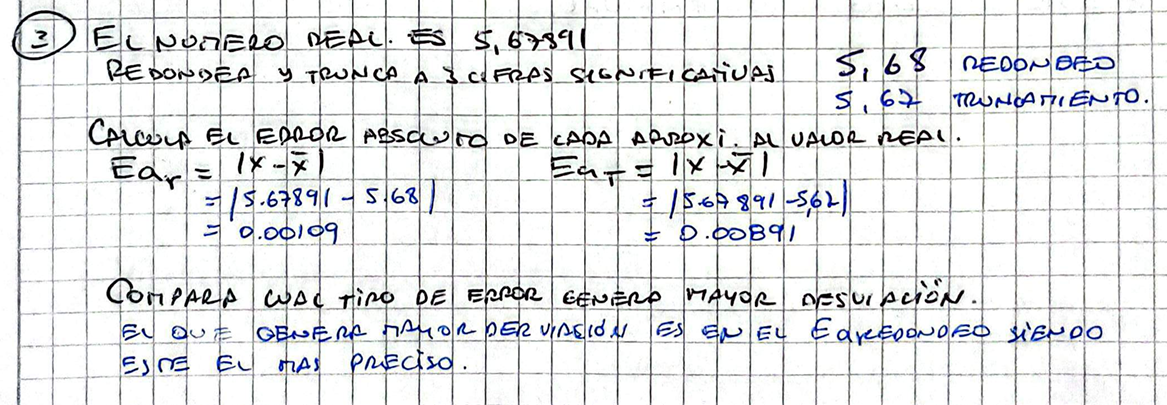 3 EL NUMERO REAL. ES 5,67891
REDONDEA Y TRUNCA A 3 CIFRAS SIGNIFICATIVAS 5,68 REDONDEO
5,67 TRUNCAMIENTO.
CALCULA EL ERROR ABSOLUTO DE CADA APROXI. AL VALOR REAL.
Ear = |x - x̄| EaT = |x - x̄|
= |5.67891 - 5.68| = |5.67891 - 5,67|
= 0.00109 = 0.00891
COMPARA CUAL TIPO DE ERROR GENERA MAYOR DESVIACIÓN.
EL QUE GENERA MAYOR DERVIACION ES EN EL Ea REDONDEO SIENDO
ESTE EL MAS PRECISO.